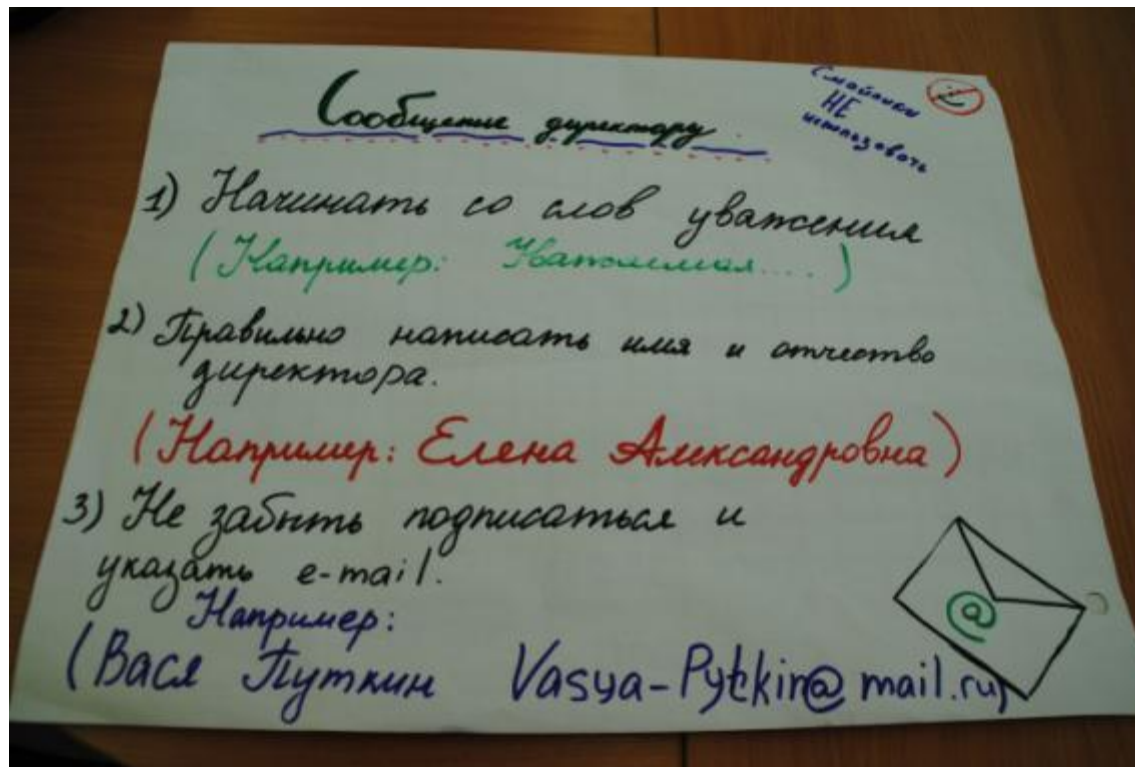 Сообщение директору.
Смайлики
НЕ
использовать
1) Начинать со слов уважения
(Например: Уважаемая....)
2) Правильно написать имя и отчество
директора.
(Например: Елена Александровна)
3) Не забыть подписаться и
указать e-mail.
Например:
(Вася Путкин Vasya-Pytkin@mail.ru)
@